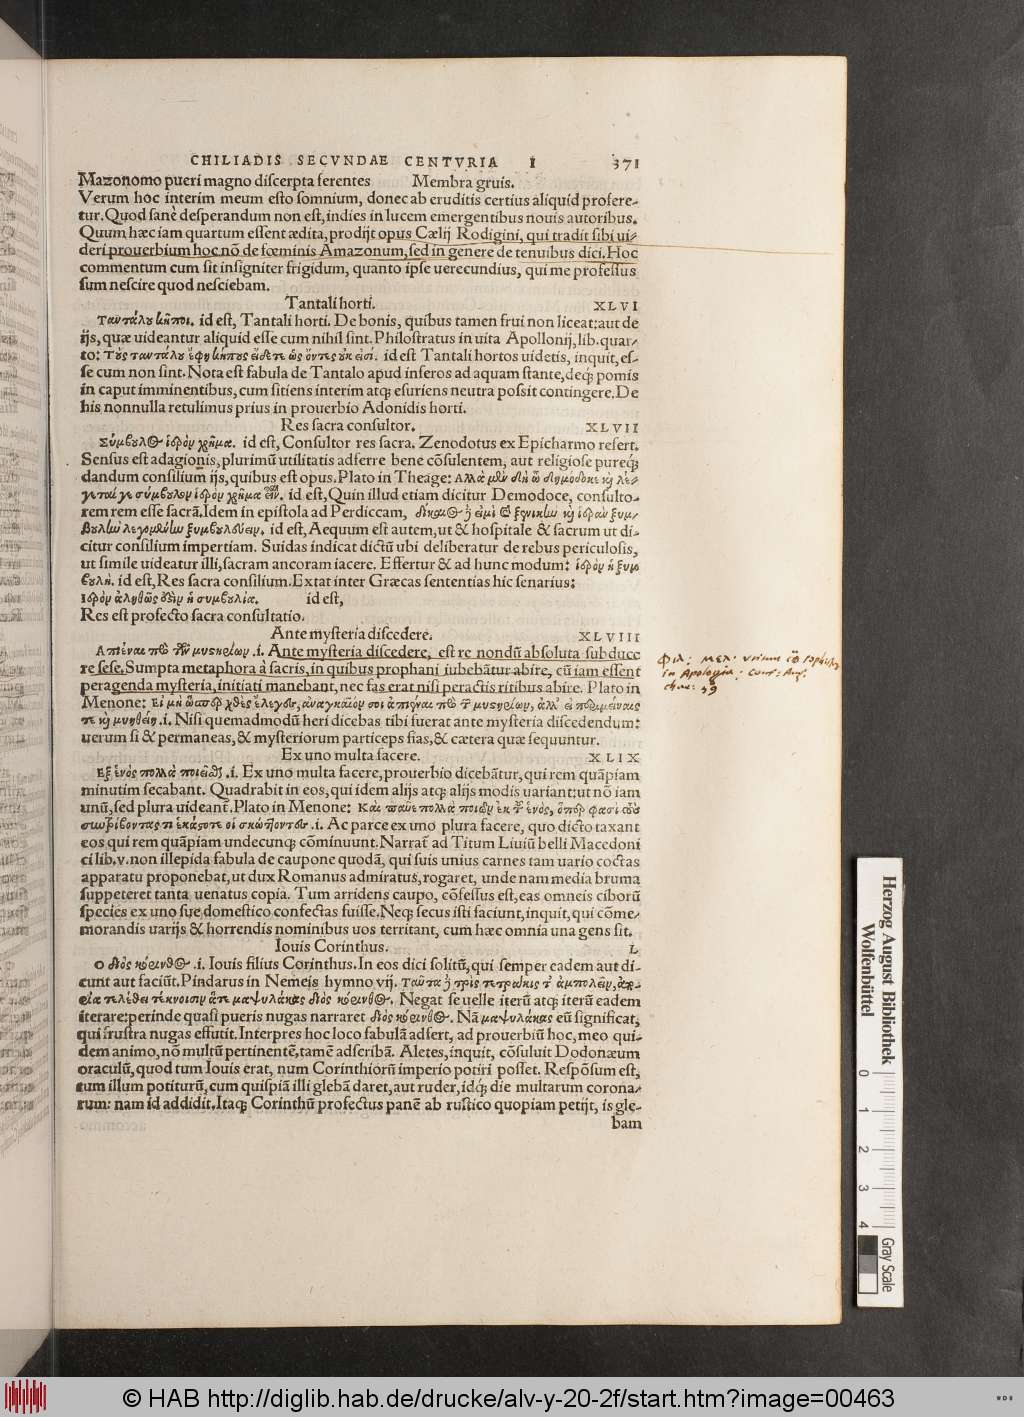 CHILIADIS SECVNDAE CENTVRIA I 371
Mazonomo pueri magno discerpta ferentes Membra gruis.
Verum hoc interim meum esto somnium, donec ab eruditis certius aliquid profere-
tur. Quod sanè desperandum non est, indies in lucem emergentibus nouis autoribus.
Quum hæc iam quartum essent ædita, prodijt opus Cælij Rodigini, qui tradit sibi ui-
deri prouerbium hoc nõ de fœminis Amazonum, sed in genere de tenuibus dici. Hoc
commentum cum sit insigniter frigidum, quanto ipse uerecundius, qui me professus
sum nescire quod nesciebam.
Tantali horti. XLVI
Ταντάλου κῆποι. id est, Tantali horti. De bonis, quibus tamen frui non liceat: aut de
ijs, quæ uideantur aliquid esse cum nihil sint. Philostratus in uita Apollonij, lib. quar-
to: Τοὺς ταντάλου ἔφη κήπους εἴδετε ὡς ὄντες οὐκ εἰσί. id est Tantali hortos uidetis, inquit, es-
se cum non sint. Nota est fabula de Tantalo apud inferos ad aquam stante, deq; pomis
in caput imminentibus, cum sitiens interim atq; esuriens neutra possit contingere. De
his nonnulla retulimus prius in prouerbio Adonidis horti.
Res sacra consultor. XLVII
Σύμβουλος ἱερὸν χρῆμα. id est, Consultor res sacra. Zenodotus ex Epicharmo refert.
Sensus est adagionis, plurimũ utilitatis adferre bene cõsulentem, aut religiose pureq;
dandum consilium ijs, quibus est opus. Plato in Theage: Αλλὰ μὲν δὴ ὦ δημόδοκε καὶ λέ-
γεταί γε σύμβουλον ἱερὸν χρῆμα εἶναι. id est, Quin illud etiam dicitur Demodoce, consulto-
rem rem esse sacrã. Idem in epistola ad Perdiccam, δίκαιος δ' εἰμὶ καὶ ξενικὴν καὶ ἱερὰν ξυμ-
βουλὴν λεγομένην ξυμβουλεύειν. id est, Aequum est autem, ut & hospitale & sacrum ut di-
citur consilium impertiam. Suidas indicat dictũ ubi deliberatur de rebus periculosis,
ut simile uideatur illi, sacram ancoram iacere. Effertur & ad hunc modum: ἱερὸν ἡ ξυμ
βουλή. id est, Res sacra consilium. Extat inter Græcas sententias hic senarius:
Ιερὸν ἀληθῶς ἐστιν ἡ συμβουλία. id est,
Res est profecto sacra consultatio.
Ante mysteria discedere. XLVIII
Απιέναι πρὸ τῶν μυστηρίων .i. Ante mysteria discedere, est re nondũ absoluta subduce
re sese. Sumpta metaphora à sacris, in quibus prophani iubebãtur abire, cũ iam essent
peragenda mysteria, initiati manebant, nec fas erat nisi peractis ritibus abire. Plato in
Menone: Εἰ μὴ ὥσπερ χθὲς ἔλεγες, ἀναγκαῖον σοι ἀπιέναι πρὸ τῶν μυστηρίων, ἀλλ' εἰ περιμείναις
τε καὶ μυηθείης .i. Nisi quemadmodũ heri dicebas tibi fuerat ante mysteria discedendum:
uerum si & permaneas, & mysteriorum particeps fias, & cætera quæ sequuntur.
Φιλ: Μελ: in Apologia:
Ex uno multa facere. XLIX
Εξ ἑνὸς πολλὰ ποιεῖν .i. Ex uno multa facere, prouerbio dicebãtur, qui rem quãpiam
minutim secabant. Quadrabit in eos, qui idem alijs atq; alijs modis uariant: ut nõ iam
unũ, sed plura uideant. Plato in Menone: Καὶ παῦε πολλὰ ποιῶν ἐκ τοῦ ἑνός, ὅπερ φασὶ τοὺς
συντρίβοντας τι ἑκάστοτε οἱ σκώπτοντες .i. Ac parce ex uno plura facere, quo dicto taxant
eos qui rem quãpiam undecunq; cõminuunt. Narrat ad Titum Liuiũ belli Macedoni
ci lib. v. non illepida fabula de caupone quodã, qui suis unius carnes tam uario coctas
apparatu proponebat, ut dux Romanus admiratus, rogaret, unde nam media bruma
suppeteret tanta uenatus copia. Tum arridens caupo, cõfessus est, eas omneis ciborũ
species ex uno sue domestico confectas fuisse. Neq; secus isti faciunt, inquit, qui cõme-
morandis uarijs & horrendis nominibus uos territant, cum hæc omnia una gens sit.
Iouis Corinthus. L
Ο διὸς κόρινθος .i. Iouis filius Corinthus. In eos dici solitũ, qui semper eadem aut di-
cunt aut faciũt. Pindarus in Nemeis hymno vij. Ταῦτα δὲ τρὶς τετράκις τ' ἀμπολεῖν, ἀπο-
ρία τελέθει τέκνοισιν ἅτε μαψυλάκας διὸς κόρινθος. Negat se uelle iterũ atq; iterũ eadem
iterare: perinde quasi pueris nugas narraret διὸς κόρινθος. Nã μαψυλάκας eũ significat,
qui frustra nugas effutit. Interpres hoc loco fabulã adfert, ad prouerbiũ hoc, meo qui-
dem animo, nõ multũ pertinentẽ, tamẽ adscribã. Aletes, inquit, cõsuluit Dodonæum
oraculũ, quod tum Iouis erat, num Corinthiorũ imperio potiri posset. Respõsum est,
tum illum potiturũ, cum quispiã illi glebã daret, aut ruder, idq; die multarum corona-
rum: nam id addidit. Itaq; Corinthũ profectus panẽ ab rustico quopiam petijt, is gle-
bam
Herzog August Bibliothek
Wolfenbüttel
0 1 2 3 4
Gray Scale
© HAB http://diglib.hab.de/drucke/alv-y-20-2f/start.htm?image=00463